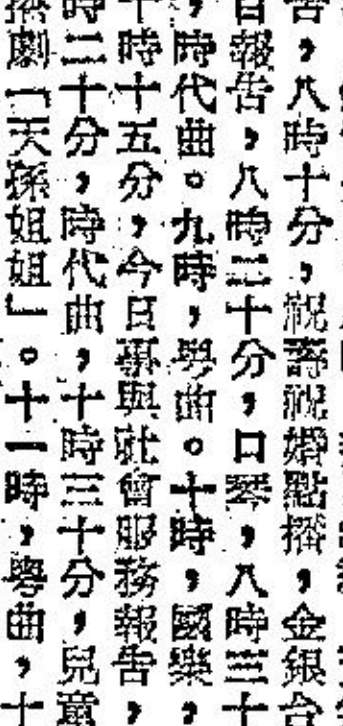 告，八時十分，祝壽祝婚點播，金銀台
日報告，八時二十分，口琴，八時三十
，時代曲。九時，粤曲。十時，國樂，
十時十五分，今日事與社會服務報告，
時二十分，時代曲，十時三十分，兒童
播劇「天孫姐姐」。十一時，粤曲，十